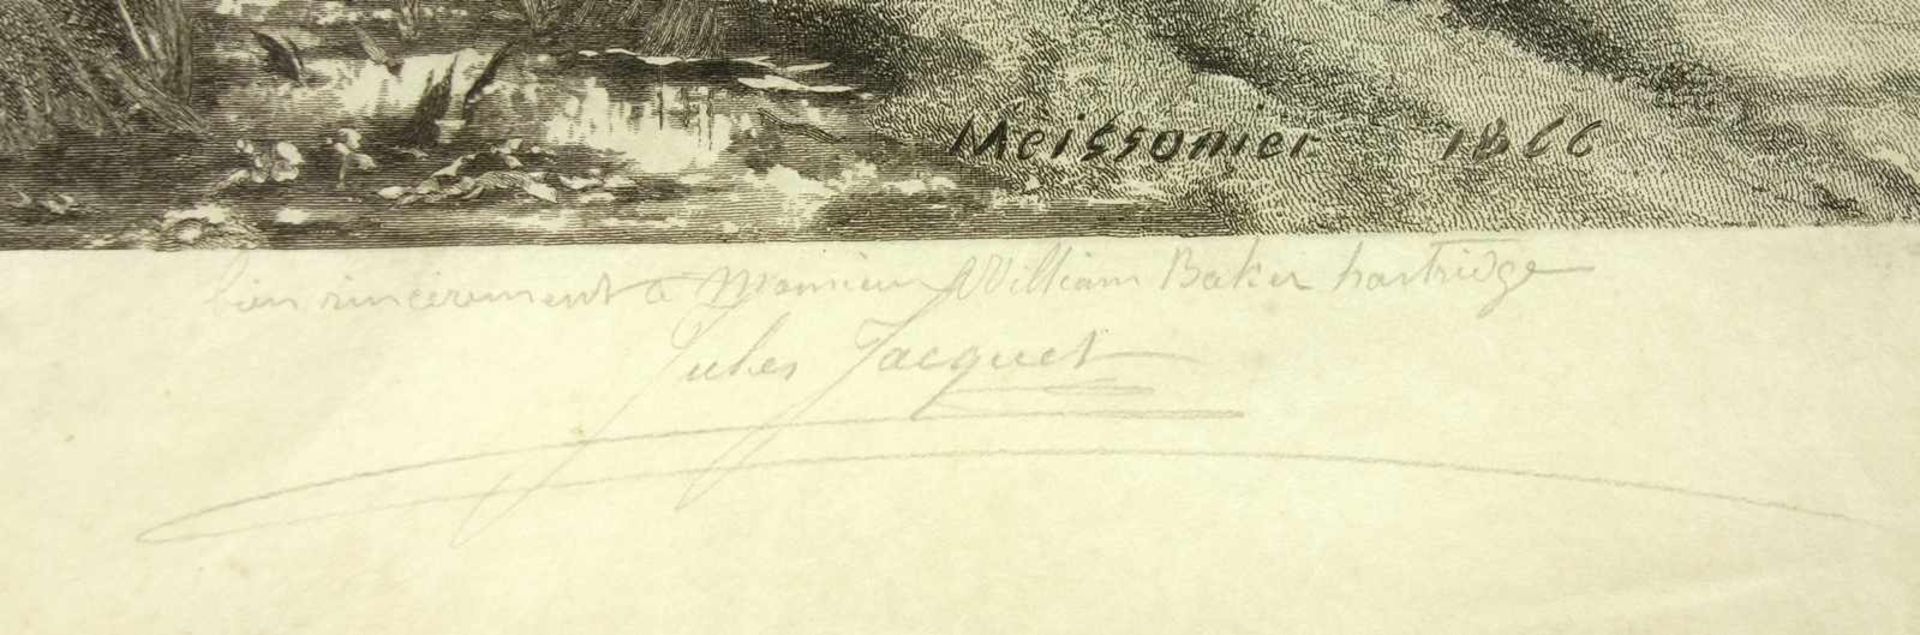 Meissonier 1866
bien sincèrement a Monsieur William Baker hartridge
Jules Jacquet